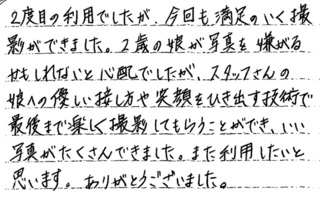 2度目の利用でしたが、今回も満足のいく撮
影ができました。2歳の娘が写真を嫌がる
かもしれないと心配でしたが、スタッフさんの
娘への優しい接し方や笑顔をひき出す技術で
最後まで楽しく撮影してもらうことができ、いい
写真がたくさんできました。また利用したいと
思います。ありがとうございました。